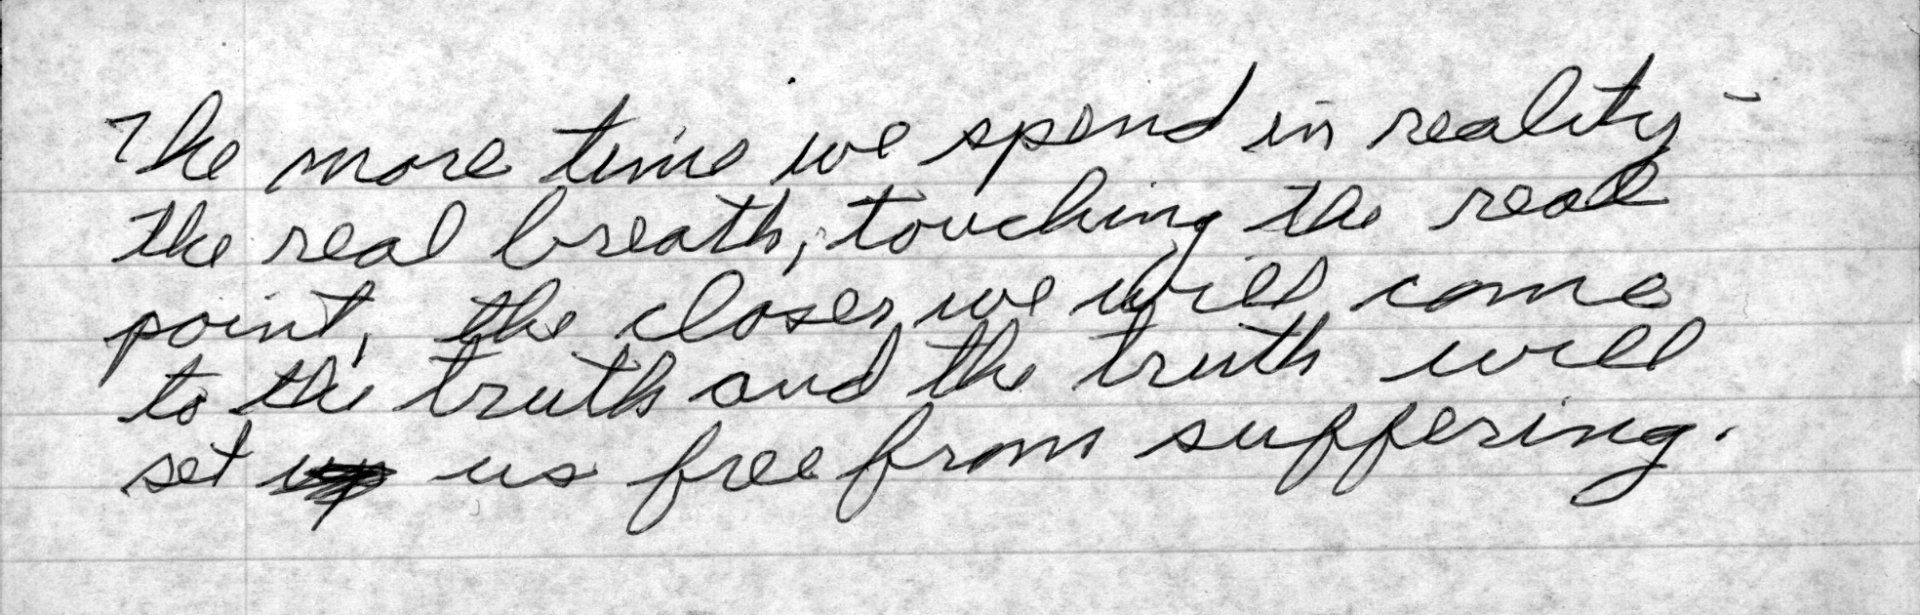 The more time we spend in reality -
the real breath, touching the real
point, the closer we will come
to the truth and the truth will
set us free from suffering.